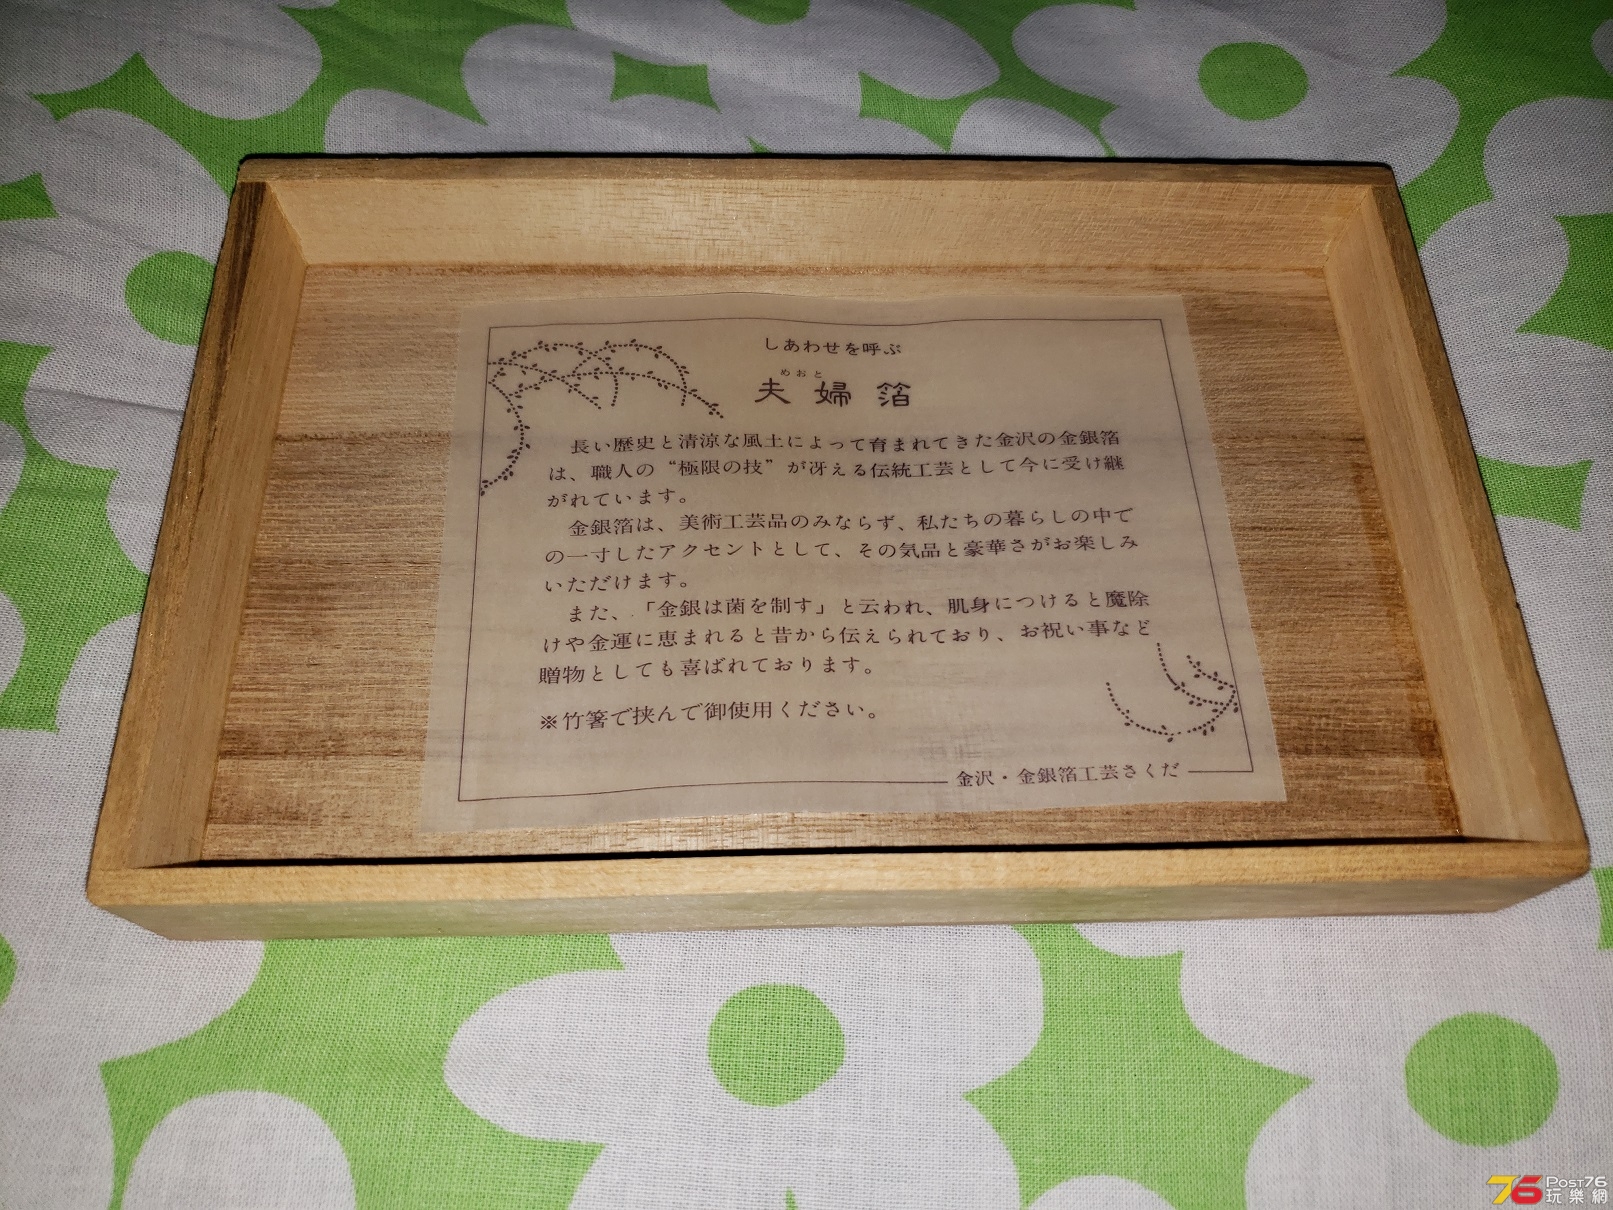 しあわせを呼ぶ
めおと
夫婦箔
長い歴史と清涼な風土によって育まれてきた金沢の金銀箔
は、職人の“極限の技”が冴える伝統工芸として今に受け継
がれています。
金銀箔は、美術工芸品のみならず、私たちの暮らしの中で
の一寸したアクセントとして、その気品と豪華さがお楽しみ
いただけます。
また、「金銀は菌を制す」と云われ、肌身につけると魔除
けや金運に恵まれると昔から伝えられており、お祝い事など
贈物としても喜ばれております。
※竹箸で挟んで御使用ください。
金沢・金銀箔工芸さくだ
76 Post76
玩樂網